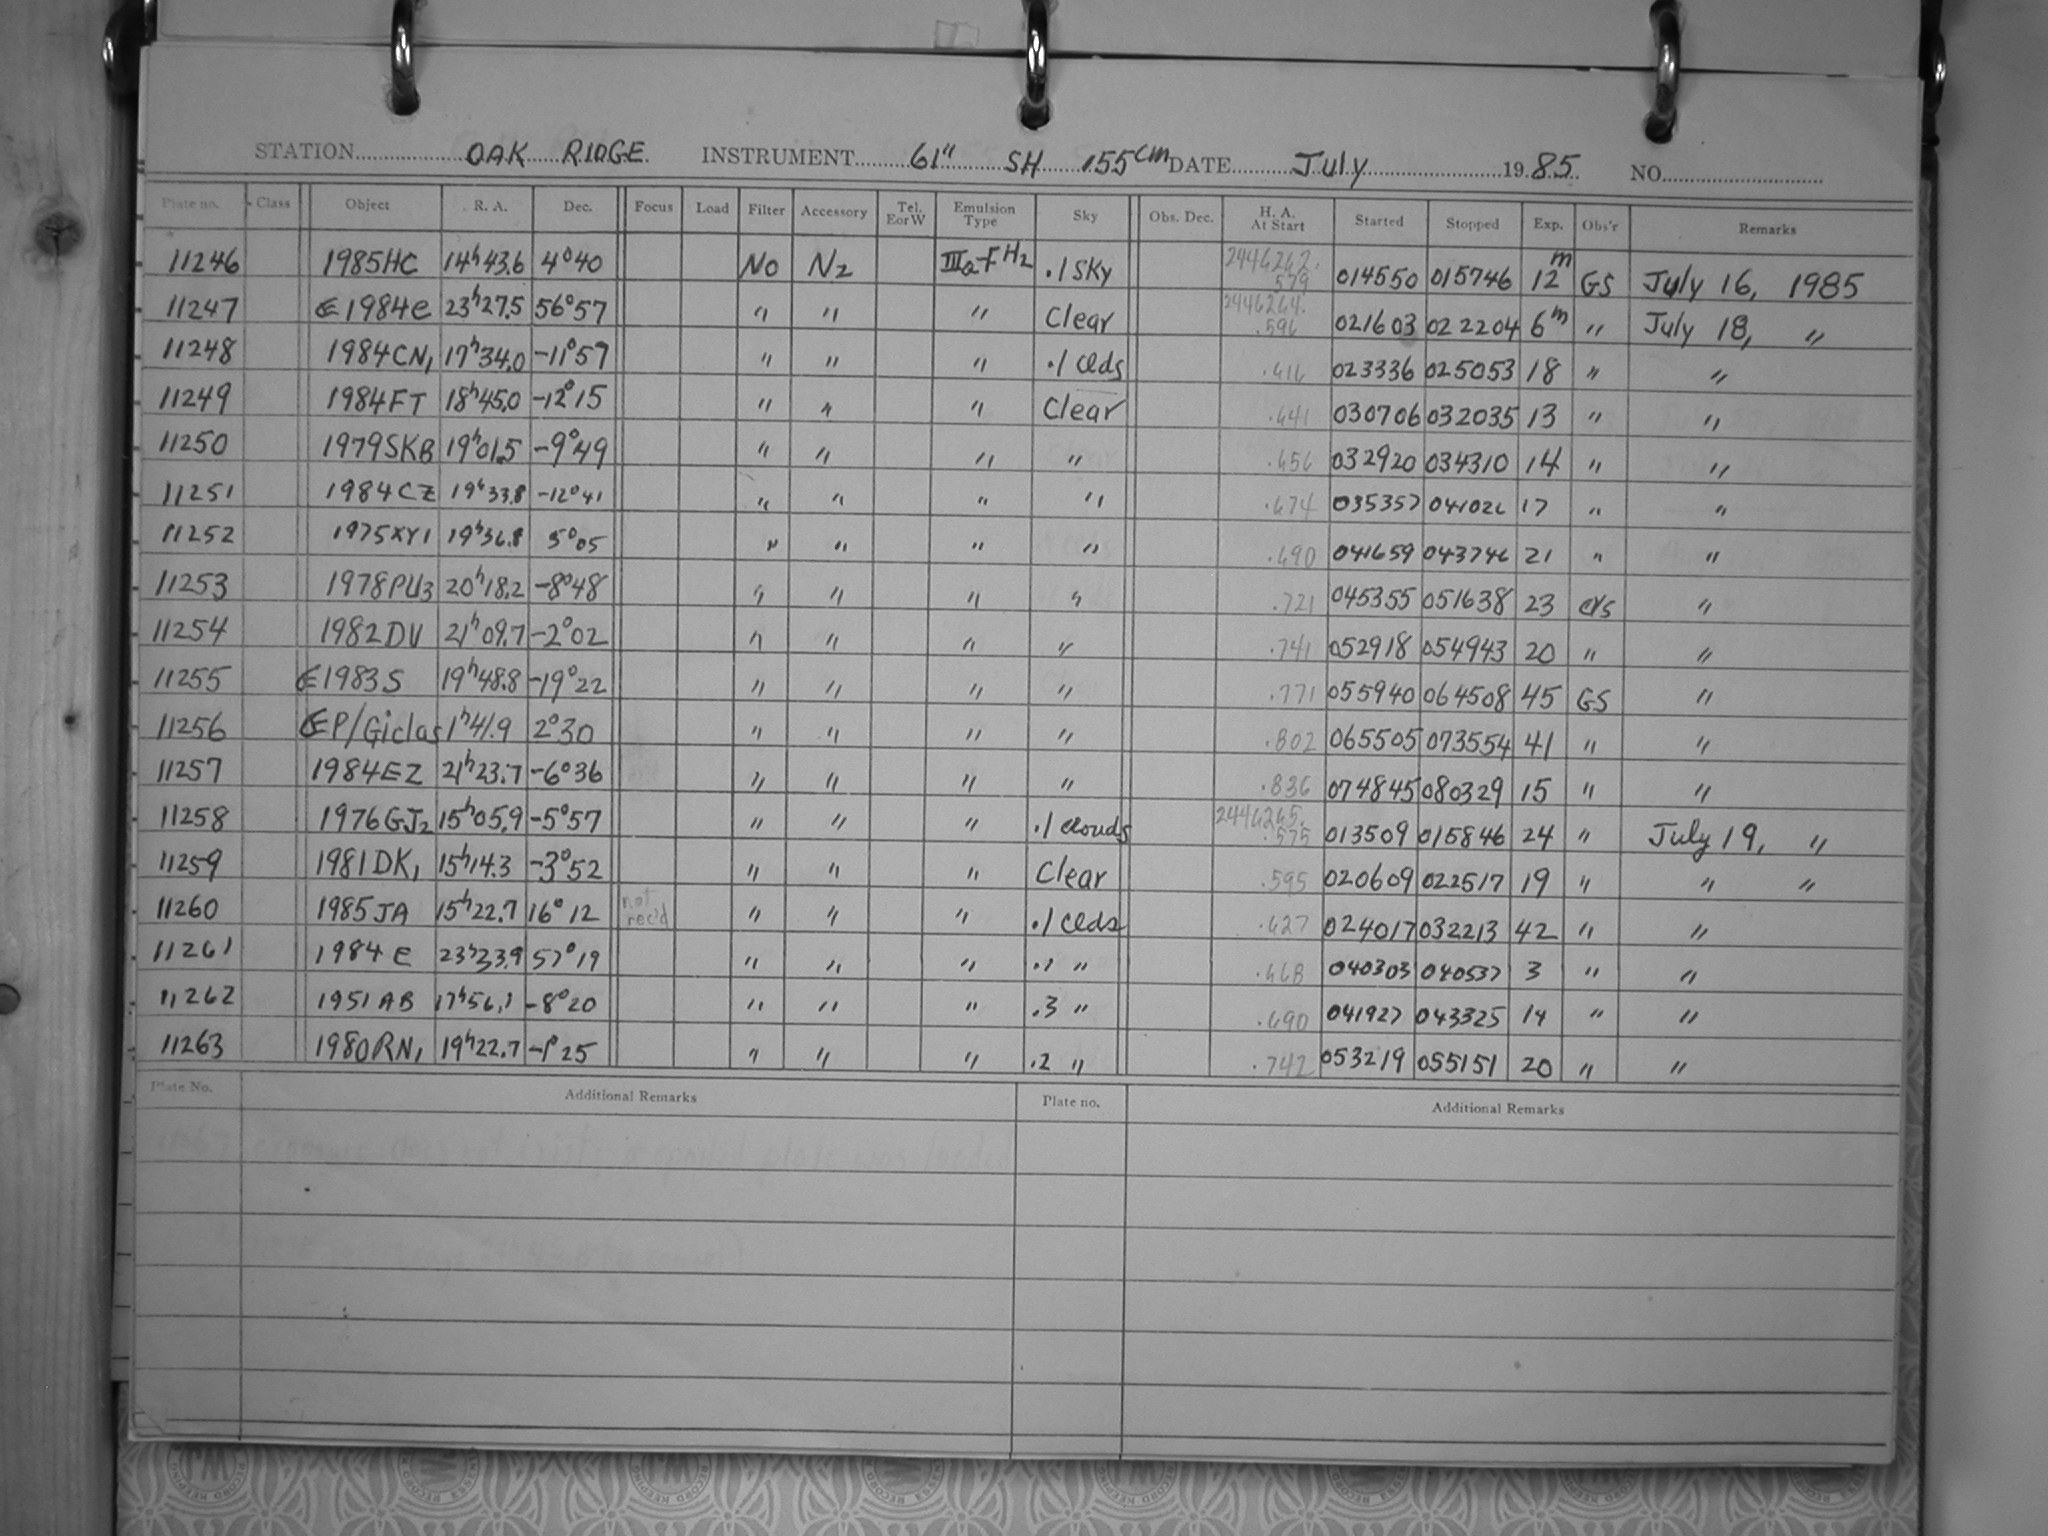 STATION OAK RIDGE INSTRUMENT 61" SH 155cm DATE July 1985 NO.
Plate no. Class Object R. A. Dec. Focus Load Filter Accessory Tel. E or W Emulsion Type Sky Obs. Dec. H. A. At Start Started Stopped Exp. Obs'r Remarks
11246 1985HC 14h43.6 4°40 No N2 IIIa-F H2 .1 Sky 2446262. .579 014550 015746 12m GS July 16, 1985
11247 1984e 23h27.5 56°57 " " " Clear 2446264. .596 021603 022204 6m " July 18, "
11248 1984CN1 17h34.0 -11°57 " " " .1 Clds 023336 025053 18 " "
11249 1984FT 18h45.0 -12°15 " " " Clear .641 030706 032035 13 " "
11250 1979SKB 19h01.5 -9°49 " " " " .656 032920 034310 14 " "
11251 1984CZ 19h33.8 -12°41 " " " " .674 035357 041026 17 " "
11252 1975XY1 19h36.8 5°05 " " " " .690 041659 043746 21 " "
11253 1978PU3 20h18.2 -8°48 " " " " .721 045355 051638 23 CYS "
11254 1982DV 21h09.7 -2°02 " " " " .741 052918 054943 20 " "
11255 1983S 19h48.8 -19°22 " " " " .771 055940 064508 45 GS "
11256 P/Giclas 1h41.9 2°30 " " " " .802 065505 073554 41 " "
11257 1984EZ 21h23.7 -6°36 " " " " .836 074845 080329 15 " "
11258 1976GJ2 15h05.9 -5°57 " " " .1 clouds 2446265. .575 013509 015846 24 " July 19, "
11259 1981DK1 15h14.3 -3°52 " " " Clear .595 020609 022517 19 " " "
11260 1985JA 15h22.7 16°12 not rec'd " " " .1 Clds .627 024017 032213 42 " "
11261 1984 E 23h23.9 57°19 " " " .1 " .668 040303 040537 3 " "
11262 1951AB 17h56.1 -8°20 " " " .3 " .690 041927 043325 14 " "
11263 1980RN1 19h22.7 -1°25 " " " .2 " .742 053219 055151 20 " "
Plate No. Additional Remarks Plate no. Additional Remarks